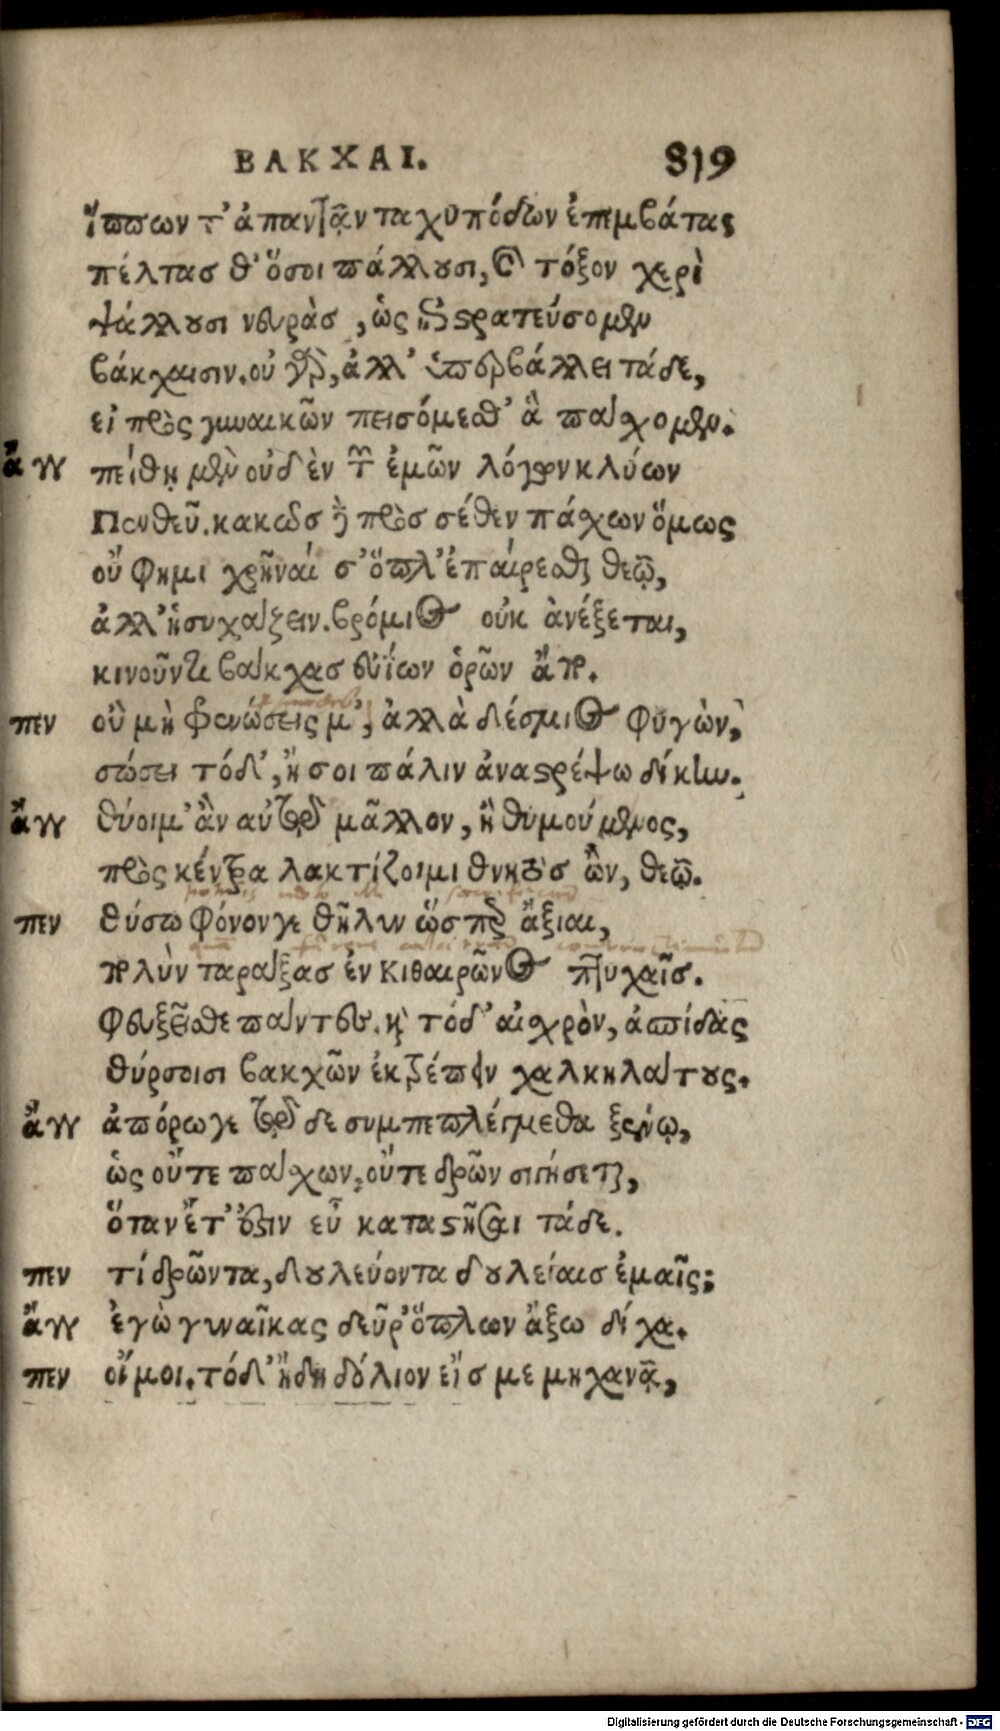 ΒΑΚΧΑΙ. 819
ἵππων τ' ἀπαντᾷν ταχυπόδων ἐπεμβάτας
πέλτας θ' ὅσοι πάλλουσι, καὶ τόξον χερὶ
ψάλλουσι νευρὰς, ὡς ἐπιστρατεύσομεν
βάκχαισιν. οὐ γὰρ, ἀλλ' ὑπερβάλλει τάδε,
εἰ πρὸς γυναικῶν πεισόμεσθ' ἃ πάσχομεν.
ἄγγ πείθῃ μὲν οὐδὲν τῶν ἐμῶν λόγων κλύων
Πενθεῦ. κακῶς δὲ πρὸς σέθεν πάσχων ὅμως
οὔ φημι χρῆναί σ' ὅπλ' ἐπαίρεσθαι θεῷ,
ἀλλ' ἡσυχάζειν. βρόμιος οὐκ ἀνέξεται,
κινοῦντι βάκχας εὐΐων ὁρῶν ἄπο.
πεν οὒ μὴ φρενώσεις μ', ἀλλὰ δέσμιος φυγὼν,
σώσει τόδ', ἤ σοι πάλιν ἀναστρέψω δίκην.
ἄγγ θύοιμ' ἂν αὐτῷ μᾶλλον, ἢ θυμούμενος,
πρὸς κέντρα λακτίζοιμι θνητὸς ὢν, θεῷ.
πεν θύσω φόνον γε θῆλυν ὥσπερ ἄξιαι,
πολὺν ταράξας ἐν Κιθαιρῶνος πτυχαῖς.
φευξεῖσθε πάντες. καὶ τόδ' αἰσχρὸν, ἀσπίδας
θύρσοισι βακχῶν ἐκτρέπειν χαλκηλάτους.
ἄγγ ἀπόρῳ γε τῷδε συμπεπλέγμεθα ξένῳ,
ὡς οὔτε πάσχων, οὔτε δρῶν σιγήσεται,
ὅταν ἔτ' ἔστιν εὖ καταστῆσαι τάδε.
πεν τί δρῶντα, δουλεύοντα δουλείαις ἐμαῖς;
ἄγγ ἐγὼ γυναῖκας δεῦρ' ὅπλων ἄξω δίχα.
πεν οἴμοι. τόδ' ἤδη δόλιον εἴς με μηχανᾷ,
Digitalisierung gefördert durch die Deutsche Forschungsgemeinschaft - DFG